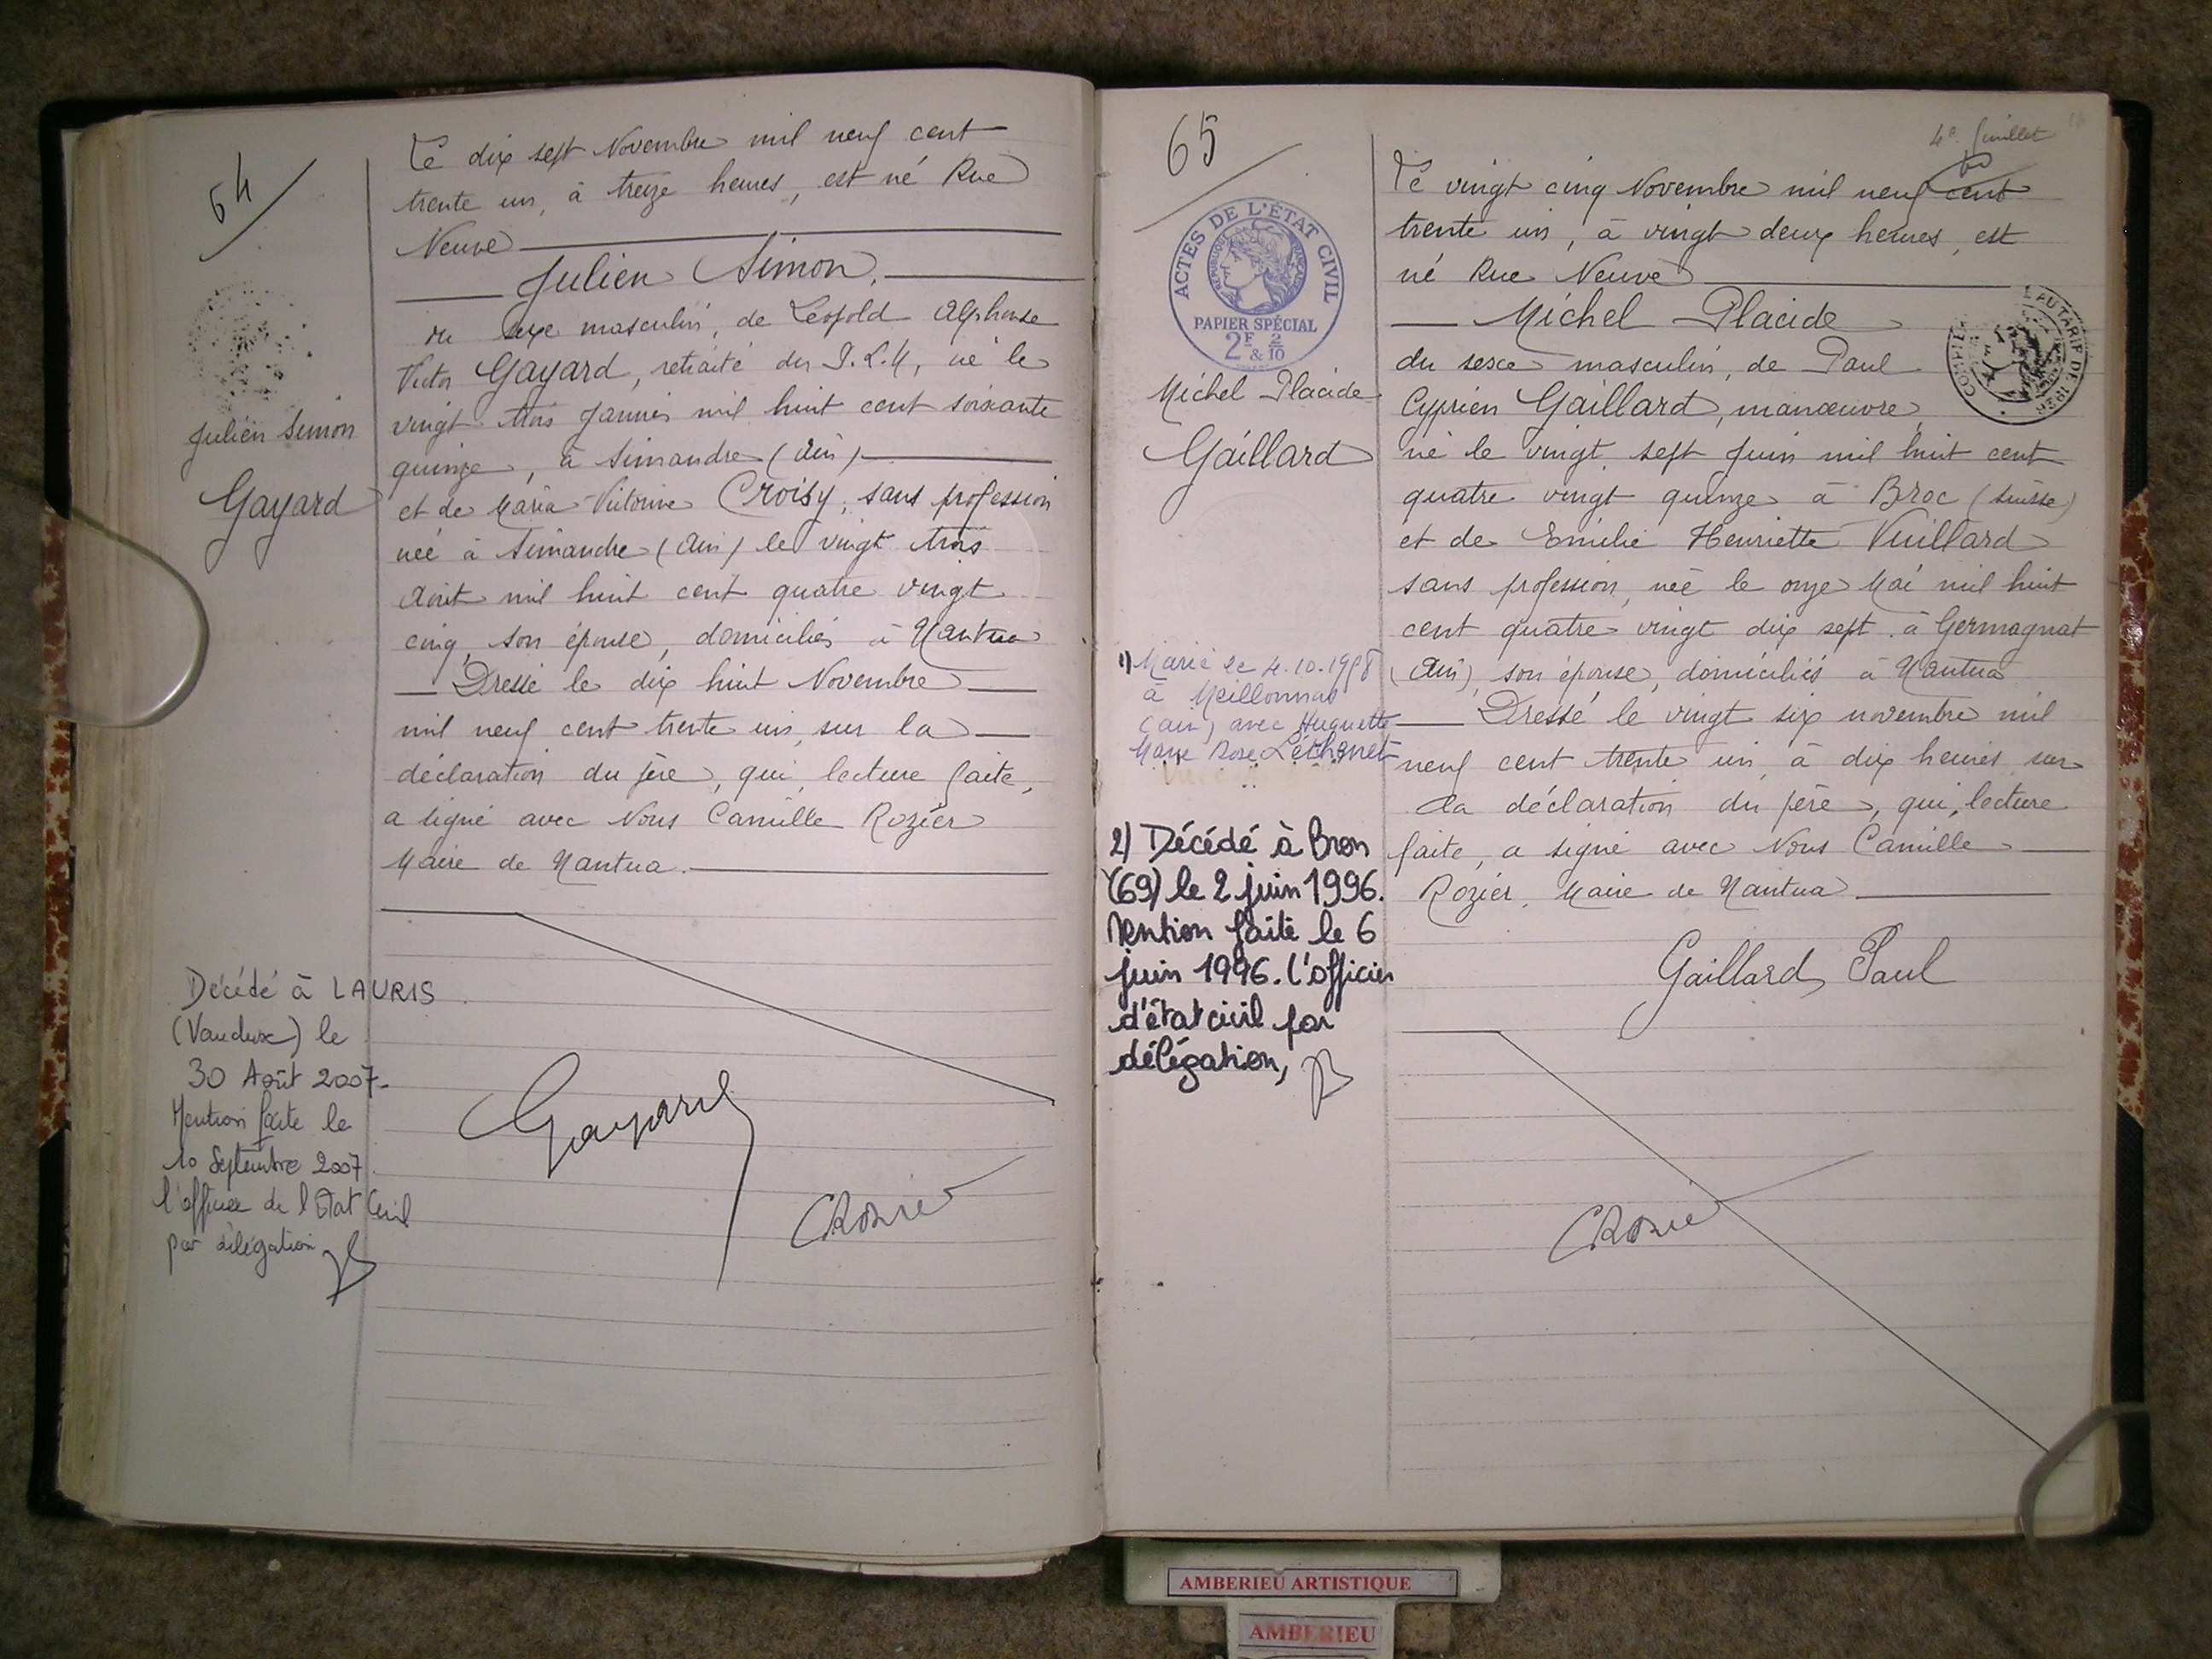 64
Julien Simon
Gayard
Décédé à LAURIS
(Vaucluse) le
30 Août 2007.
Mention faite le
10 Septembre 2007
l'officier de l'Etat Civil
par délégation
Le dix sept Novembre mil neuf cent
trente un, à treize heures, est né Rue
Neuve
Julien Simon,
du sexe masculin, de Léopold Alphonse
Victor Gayard, retraité du P.L.M, né le
vingt trois Janvier mil huit cent soixante
quinze, à Simandre (Ain)
et de Maria Victorine Croisy, sans profession
née à Simandre (Ain) le vingt trois
Août mil huit cent quatre vingt
cinq, son épouse, domiciliés à Nantua
Dressé le dix huit Novembre
mil neuf cent trente un, sur la
déclaration du père, qui, lecture faite,
a signé avec Nous Camille Rozier
Maire de Nantua.
Gayard
CRozier
65
ACTES DE L'ÉTAT CIVIL
PAPIER SPÉCIAL
2F & 2/10
Michel Placide
Gaillard
1) Marié le 4.10.1958
à Meillonnas
(Ain) avec Huguette
Marie Rose
2) Décédé à Bron
(69) le 2 juin 1996.
Mention faite le 6
juin 1996. l'officier
d'état civil par
délégation,
4e feuillet
Le vingt cinq Novembre mil neuf cent
trente un, à vingt deux heures, est
né Rue Neuve
Michel Placide
du sexe masculin, de Paul
Cyprien Gaillard, manœuvre,
né le vingt sept Juin mil huit cent
quatre vingt quinze à Broc (Suisse)
et de Emilie Henriette Vuillard
sans profession, née le onze Mai mil huit
cent quatre vingt dix sept à Germagnat
(Ain), son épouse, domiciliés à Nantua
Dressé le vingt six novembre mil
neuf cent trente un, à dix heures sur
la déclaration du père, qui, lecture
faite, a signé avec Nous Camille
Rozier, Maire de Nantua
Gaillard Paul
CRozier
AMBERIEU ARTISTIQUE
AMBERIEU